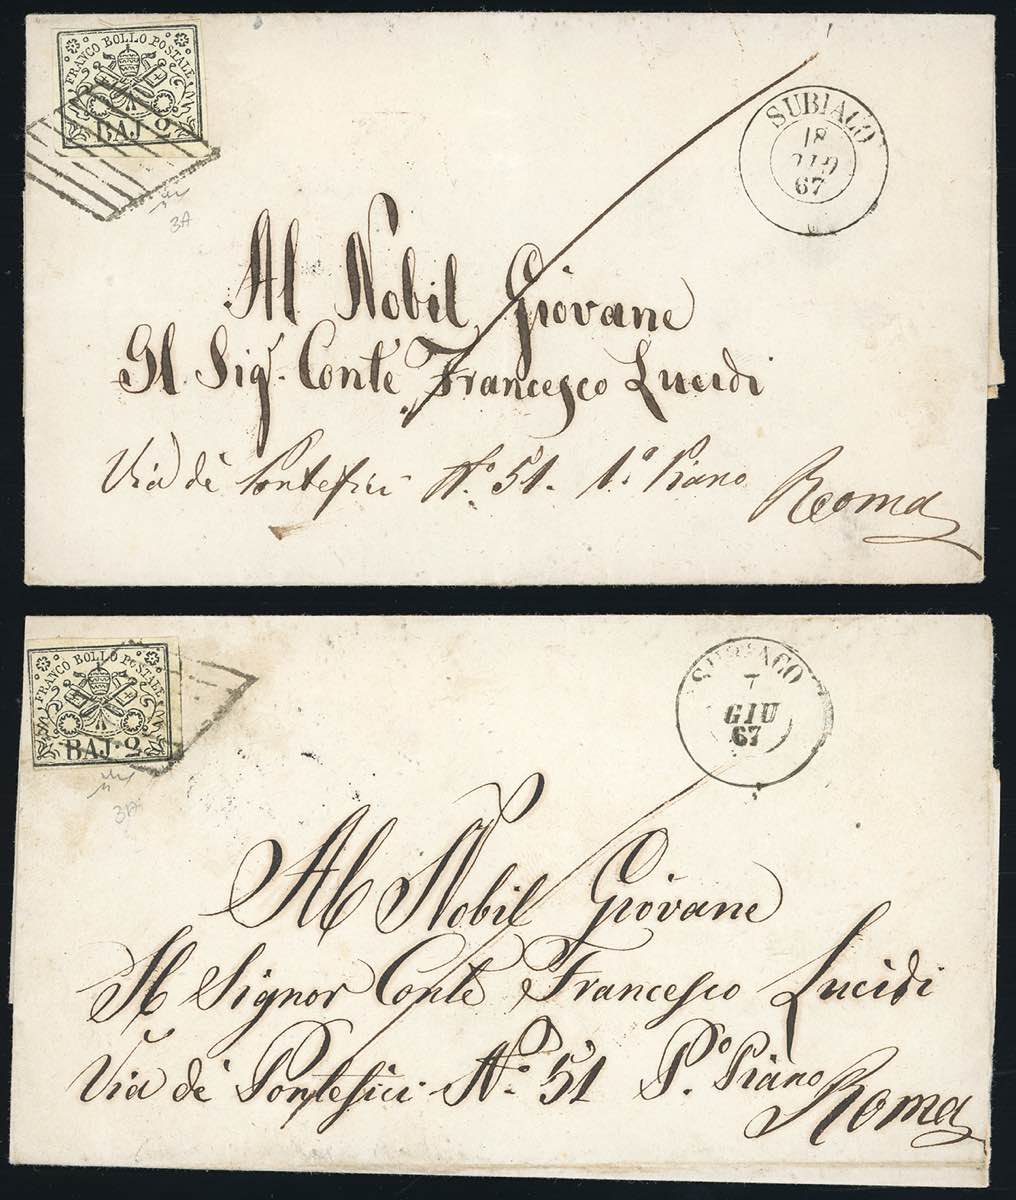 FRANCO BOLLO POSTALE
BAJ 2
3A
SUBIACO
18
67
Al Nobil Giovane
Il Sigr. Conte Francesco Lucidi
Via de Pontefici No. 51. 1o. Piano
Roma
FRANCO BOLLO POSTALE
BAJ. 2
3A
SUBIACO
7
GIU
67
Al Nobil Giovane
Il Signor Conte Francesco Lucidi
Via de' Pontefici No. 51 Po. Piano
Roma